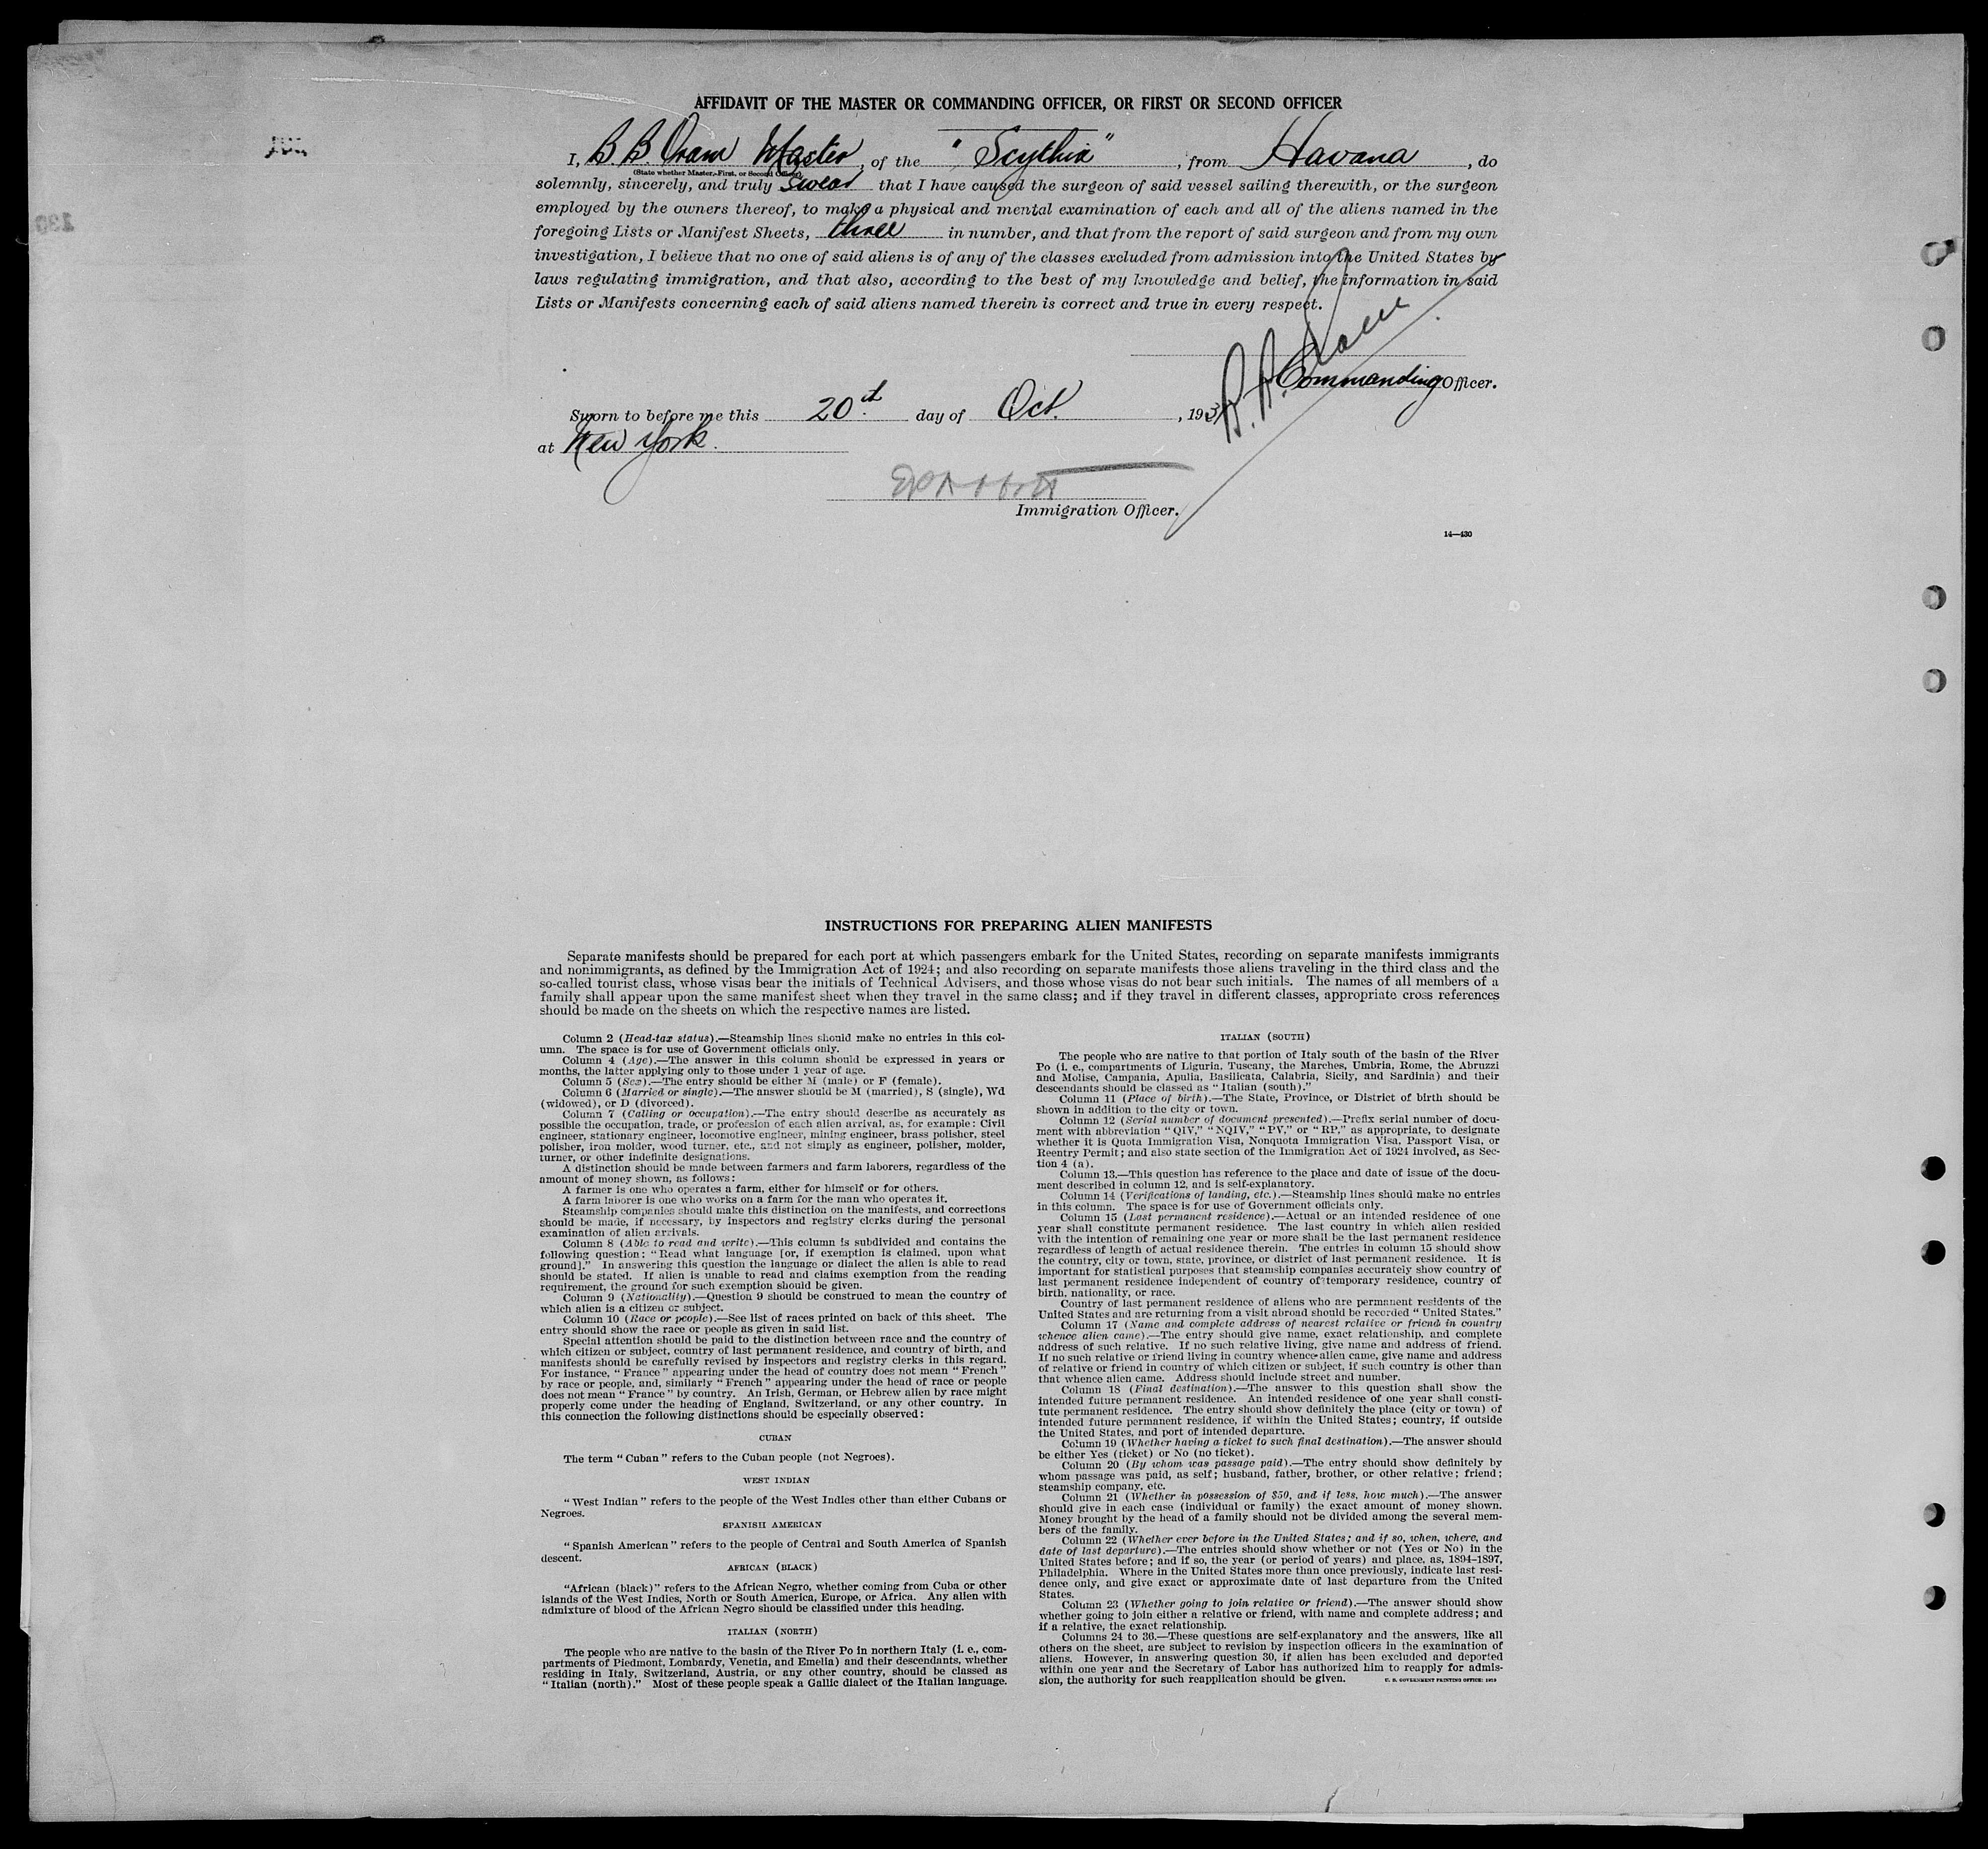 AFFIDAVIT OF THE MASTER OR COMMANDING OFFICER, OR FIRST OR SECOND OFFICER
I, B. B. Oram Master, of the "Scythia", from Havana, do
(State whether Master, First, or Second Officer)
solemnly, sincerely, and truly swear that I have caused the surgeon of said vessel sailing therewith, or the surgeon
employed by the owners thereof, to make a physical and mental examination of each and all of the aliens named in the
foregoing Lists or Manifest Sheets, three in number, and that from the report of said surgeon and from my own
investigation, I believe that no one of said aliens is of any of the classes excluded from admission into the United States by
laws regulating immigration, and that also, according to the best of my knowledge and belief, the information in said
Lists or Manifests concerning each of said aliens named therein is correct and true in every respect.
Commanding Officer.
Sworn to before me this 20th day of Oct., 193
at New York.
Immigration Officer.
14—430
INSTRUCTIONS FOR PREPARING ALIEN MANIFESTS
Separate manifests should be prepared for each port at which passengers embark for the United States, recording on separate manifests immigrants
and nonimmigrants, as defined by the Immigration Act of 1924; and also recording on separate manifests those aliens traveling in the third class and the
so-called tourist class, whose visas bear the initials of Technical Advisers, and those whose visas do not bear such initials. The names of all members of a
family shall appear upon the same manifest sheet when they travel in the same class; and if they travel in different classes, appropriate cross references
should be made on the sheets on which the respective names are listed.
Column 2 (Head-tax status).—Steamship lines should make no entries in this col-
umn. The space is for use of Government officials only.
Column 4 (Age).—The answer in this column should be expressed in years or
months, the latter applying only to those under 1 year of age.
Column 5 (Sex).—The entry should be either M (male) or F (female).
Column 6 (Married or single).—The answer should be M (married), S (single), Wd
(widowed), or D (divorced).
Column 7 (Calling or occupation).—The entry should describe as accurately as
possible the occupation, trade, or profession of each alien arrival, as, for example: Civil
engineer, stationary engineer, locomotive engineer, mining engineer, brass polisher, steel
polisher, iron molder, wood turner, etc., and not simply as engineer, polisher, molder,
turner, or other indefinite designations.
A distinction should be made between farmers and farm laborers, regardless of the
amount of money shown, as follows:
A farmer is one who operates a farm, either for himself or for others.
A farm laborer is one who works on a farm for the man who operates it.
Steamship companies should make this distinction on the manifests, and corrections
should be made, if necessary, by inspectors and registry clerks during the personal
examination of alien arrivals.
Column 8 (Able to read and write).—This column is subdivided and contains the
following question: "Read what language [or, if exemption is claimed, upon what
ground]." In answering this question the language or dialect the alien is able to read
should be stated. If alien is unable to read and claims exemption from the reading
requirement, the ground for such exemption should be given.
Column 9 (Nationality).—Question 9 should be construed to mean the country of
which alien is a citizen or subject.
Column 10 (Race or people).—See list of races printed on back of this sheet. The
entry should show the race or people as given in said list.
Special attention should be paid to the distinction between race and the country of
which citizen or subject, country of last permanent residence, and country of birth, and
manifests should be carefully revised by inspectors and registry clerks in this regard.
For instance, "France" appearing under the head of country does not mean "French"
by race or people, and, similarly "French" appearing under the head of race or people
does not mean "France" by country. An Irish, German, or Hebrew alien by race might
properly come under the heading of England, Switzerland, or any other country. In
this connection the following distinctions should be especially observed:
CUBAN
The term "Cuban" refers to the Cuban people (not Negroes).
WEST INDIAN
"West Indian" refers to the people of the West Indies other than either Cubans or
Negroes.
SPANISH AMERICAN
"Spanish American" refers to the people of Central and South America of Spanish
descent.
AFRICAN (BLACK)
"African (black)" refers to the African Negro, whether coming from Cuba or other
islands of the West Indies, North or South America, Europe, or Africa. Any alien with
admixture of blood of the African Negro should be classified under this heading.
ITALIAN (NORTH)
The people who are native to the basin of the River Po in northern Italy (i. e., com-
partments of Piedmont, Lombardy, Venetia, and Emelia) and their descendants, whether
residing in Italy, Switzerland, Austria, or any other country, should be classed as
"Italian (north)." Most of these people speak a Gallic dialect of the Italian language.
ITALIAN (SOUTH)
The people who are native to that portion of Italy south of the basin of the River
Po (i. e., compartments of Liguria, Tuscany, the Marches, Umbria, Rome, the Abruzzi
and Molise, Campania, Apulia, Basilicata, Calabria, Sicily, and Sardinia) and their
descendants should be classed as "Italian (south)."
Column 11 (Place of birth).—The State, Province, or District of birth should be
shown in addition to the city or town.
Column 12 (Serial number of document presented).—Prefix serial number of docu-
ment with abbreviation "QIV," "NQIV," "PV," or "RP," as appropriate, to designate
whether it is Quota Immigration Visa, Nonquota Immigration Visa, Passport Visa, or
Reentry Permit; and also state section of the Immigration Act of 1924 involved, as Sec-
tion 4 (a).
Column 13.—This question has reference to the place and date of issue of the docu-
ment described in column 12, and is self-explanatory.
Column 14 (Verifications of landing, etc.).—Steamship lines should make no entries
in this column. The space is for use of Government officials only.
Column 15 (Last permanent residence).—Actual or an intended residence of one
year shall constitute permanent residence. The last country in which alien resided
with the intention of remaining one year or more shall be the last permanent residence
regardless of length of actual residence therein. The entries in column 15 should show
the country, city or town, state, province, or district of last permanent residence. It is
important for statistical purposes that steamship companies accurately show country of
last permanent residence independent of country of temporary residence, country of
birth, nationality, or race.
Country of last permanent residence of aliens who are permanent residents of the
United States and are returning from a visit abroad should be recorded "United States."
Column 17 (Name and complete address of nearest relative or friend in country
whence alien came).—The entry should give name, exact relationship, and complete
address of such relative. If no such relative living, give name and address of friend.
If no such relative or friend living in country whence alien came, give name and address
of relative or friend in country of which citizen or subject, if such country is other than
that whence alien came. Address should include street and number.
Column 18 (Final destination).—The answer to this question shall show the
intended future permanent residence. An intended residence of one year shall consti-
tute permanent residence. The entry should show definitely the place (city or town) of
intended future permanent residence, if within the United States; country, if outside
the United States, and port of intended departure.
Column 19 (Whether having a ticket to such final destination).—The answer should
be either Yes (ticket) or No (no ticket).
Column 20 (By whom was passage paid).—The entry should show definitely by
whom passage was paid, as self; husband, father, brother, or other relative; friend;
steamship company, etc.
Column 21 (Whether in possession of $50, and if less, how much).—The answer
should give in each case (individual or family) the exact amount of money shown.
Money brought by the head of a family should not be divided among the several mem-
bers of the family.
Column 22 (Whether ever before in the United States; and if so, when, where, and
date of last departure).—The entries should show whether or not (Yes or No) in the
United States before; and if so, the year (or period of years) and place, as, 1894–1897,
Philadelphia. Where in the United States more than once previously, indicate last resi-
dence only, and give exact or approximate date of last departure from the United
States.
Column 23 (Whether going to join relative or friend).—The answer should show
whether going to join either a relative or friend, with name and complete address; and
if a relative, the exact relationship.
Columns 24 to 36.—These questions are self-explanatory and the answers, like all
others on the sheet, are subject to revision by inspection officers in the examination of
aliens. However, in answering question 30, if alien has been excluded and deported
within one year and the Secretary of Labor has authorized him to reapply for admis-
sion, the authority for such reapplication should be given.
U. S. GOVERNMENT PRINTING OFFICE: